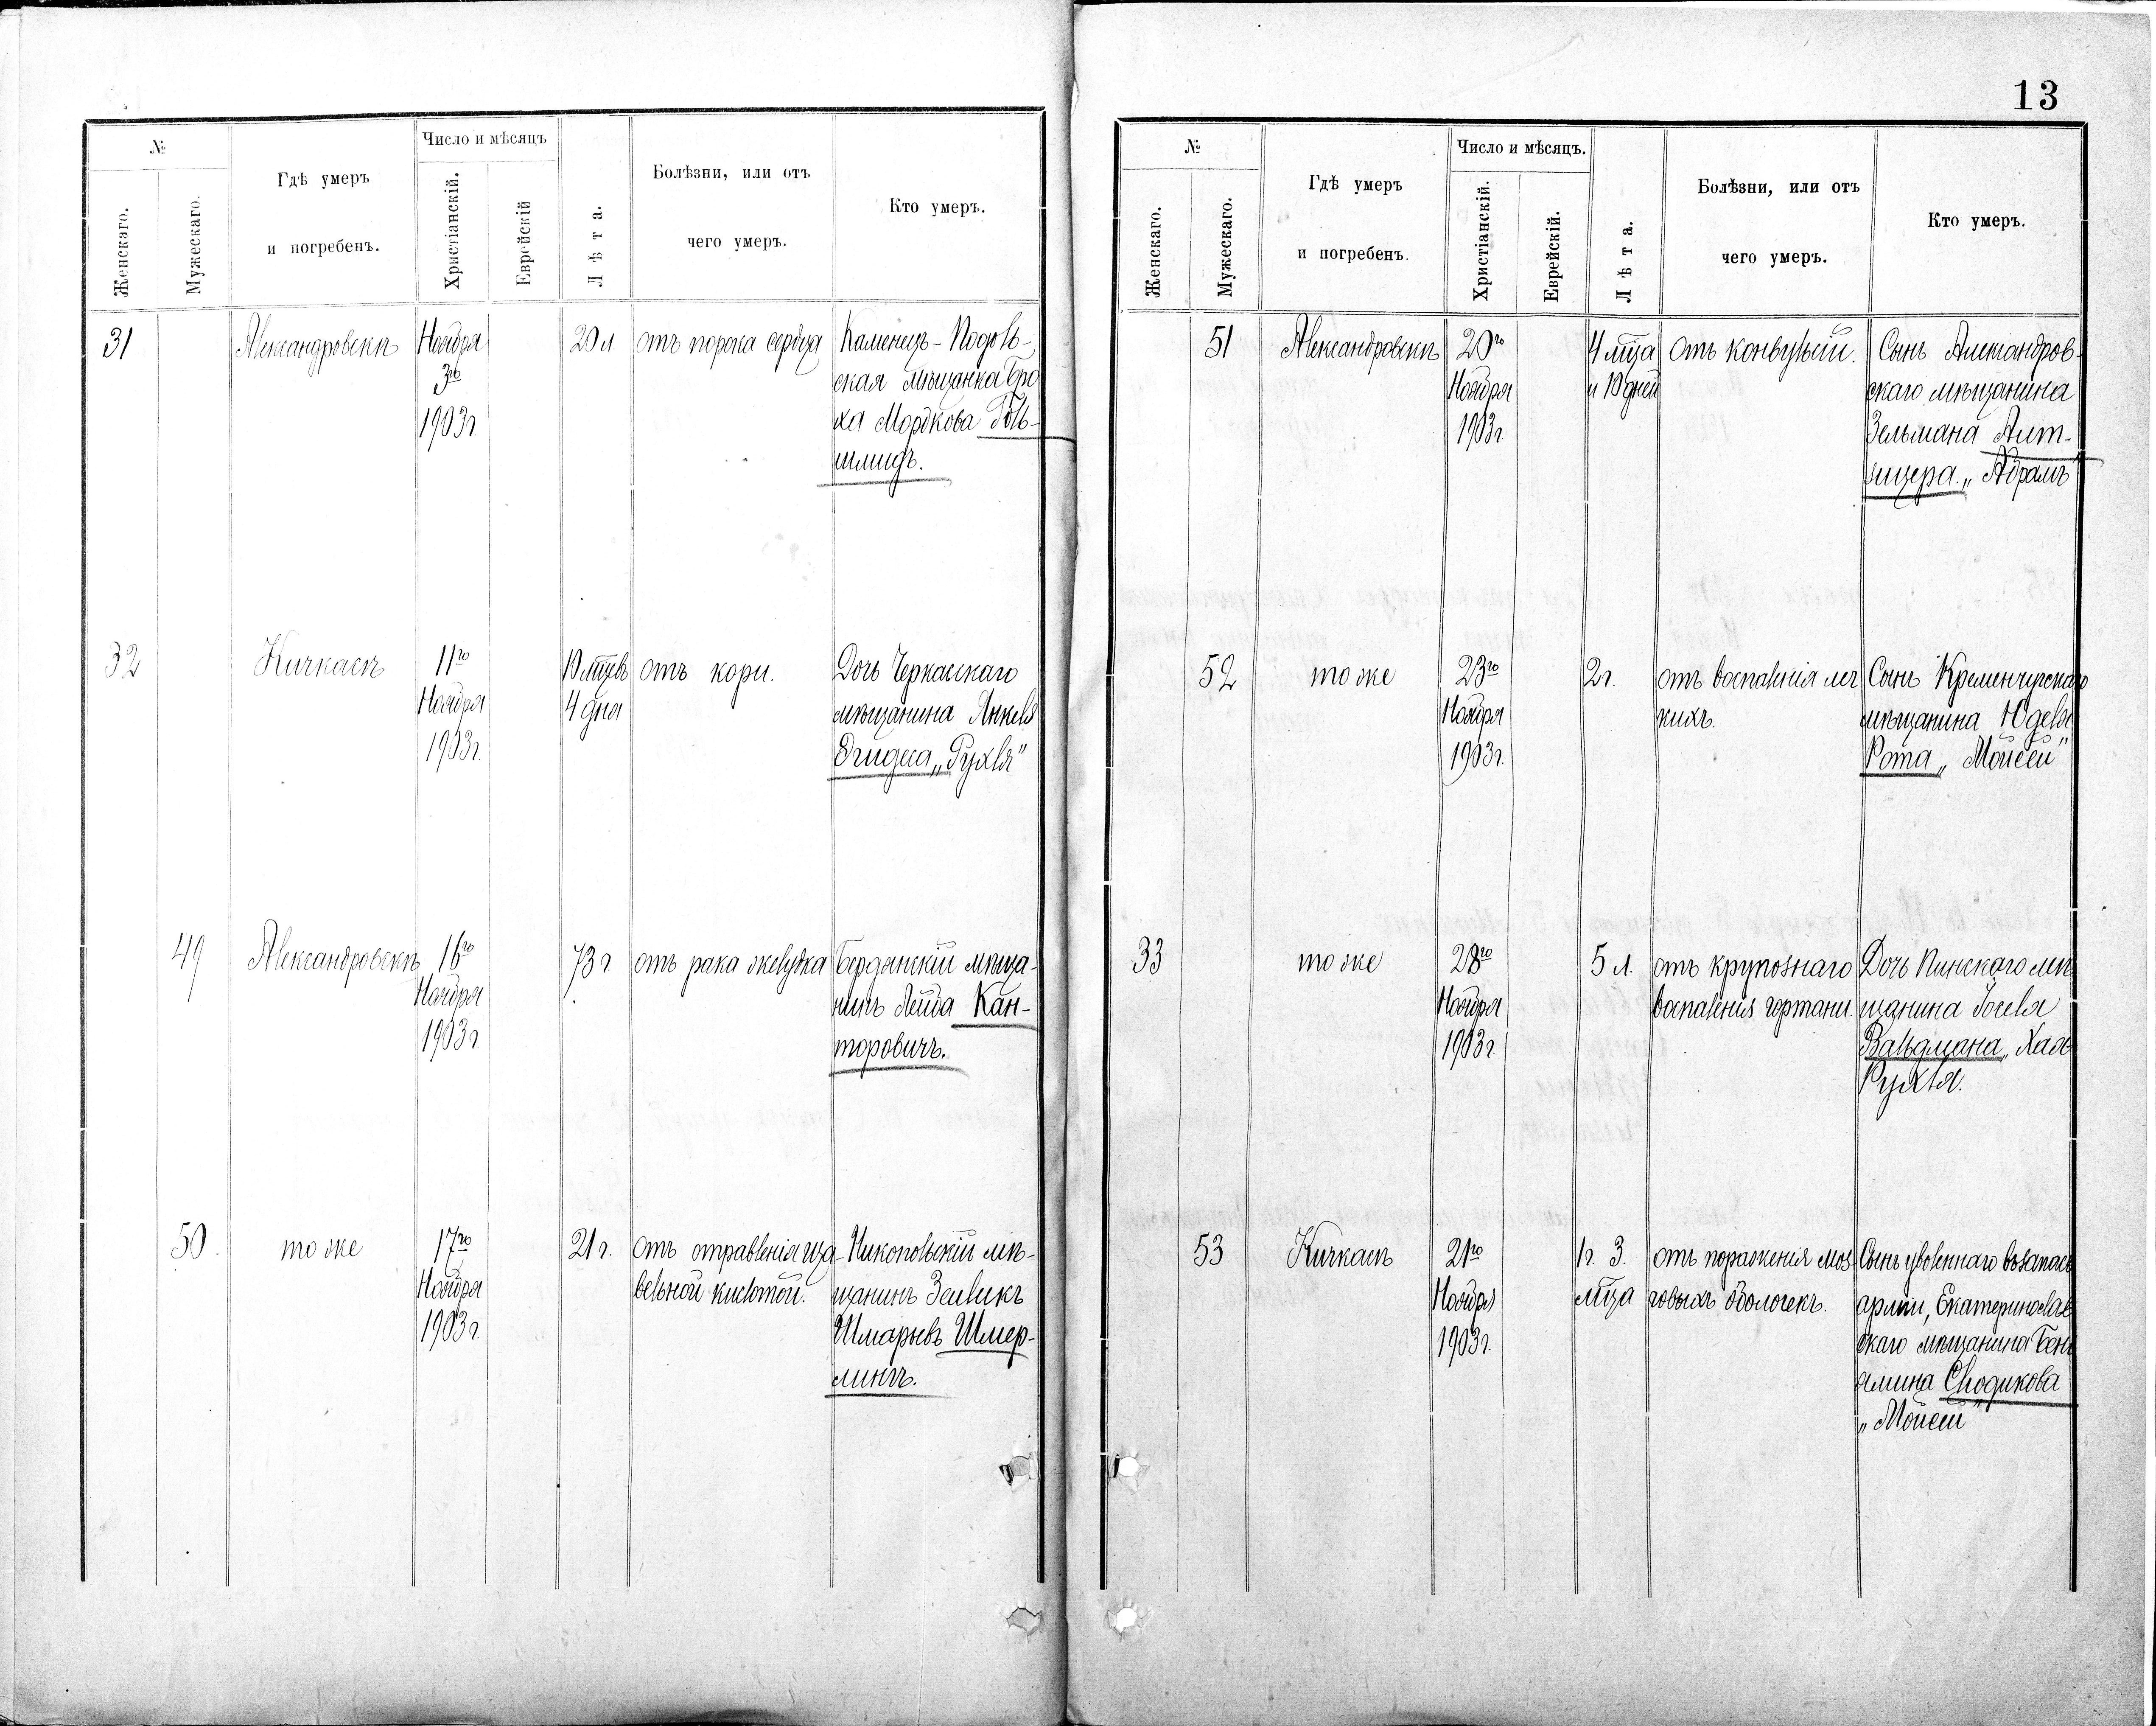 №
Женскаго.
Мужескаго.
Гдѣ умеръ
и погребенъ.
Число и мѣсяцъ
Христіанскій.
Еврейскій
Лѣта.
Болѣзни, или отъ
чего умеръ.
Кто умеръ.
31
Александровскъ
Ноября
3го
1903г.
20 л
отъ порока сердца
Каменецъ-Подоль-
ская мѣщанка Бро
ха Мордкова Голь-
шмидъ.
32
Кичкасъ
11го
Ноября
1903г.
10 мцевъ
4 дня
отъ кори.
Дочь Черкасскаго
мѣщанина Янкеля
„Рухля"
49
Александровскъ
16го
Ноября
1903г.
73 г.
отъ рака желудка
Бердянскій мѣща-
нинъ Лейба Кан-
торовичъ.
50.
тоже
17го
Ноября
1903г.
21 г.
отъ отравленія ща-
вельной кислотой.
Никопольскій мѣ-
щанинъ Зеликъ
Шмарьевъ Шмер-
лингъ.
13
№
Женскаго.
Мужескаго.
Гдѣ умеръ
и погребенъ.
Число и мѣсяцъ.
Христіанскій.
Еврейскій.
Лѣта.
Болѣзни, или отъ
чего умеръ.
Кто умеръ.
51
Александровскъ
20го
Ноября
1903г.
4 мца
и 10 дней
отъ конвульсій.
Сынъ Александров-
скаго мѣщанина
Зельмана Альт-
зицера. „Абрамъ"
52
тоже
23го
Ноября
1903г.
2 г.
отъ воспаленія лег
кихъ.
Сынъ Кременчугскаго
мѣщанина Юделя
Рота „Мойсей"
33
тоже
28го
Ноября
1903г.
5 л.
отъ крупознаго
воспаленія гортани.
Дочь Пинскаго мѣ
щанина Іоселя
Вальдмана „Хая
Рухля.
53
Кичкасъ
21го
Ноября
1903г.
1 г. 3.
мца
отъ пораженія моз-
говыхъ оболочекъ.
Сынъ уволеннаго въ запасъ
арміи, Екатеринослав
скаго мѣщанина Бень
ямина Слодикова
„Мойсей"